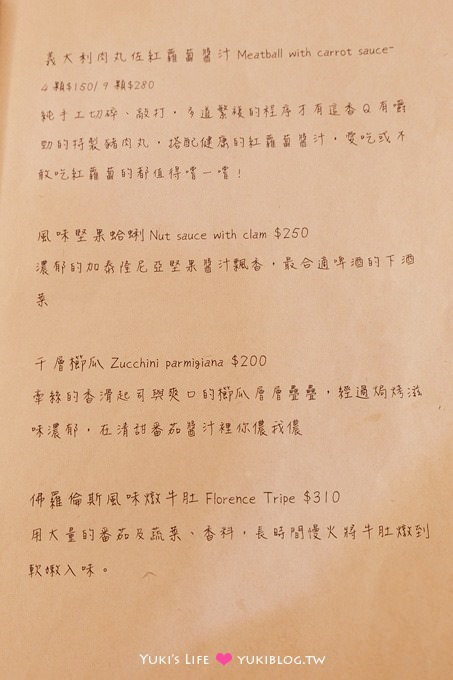 義大利肉丸佐紅蘿蔔醬汁 Meatball with carrot sauce-
4顆$150/9顆$280
純手工切碎、敲打，多道繁複的程序才有這香Q有嚼
勁的特製豬肉丸，搭配健康的紅蘿蔔醬汁，愛吃或不
敢吃紅蘿蔔的都值得嚐一嚐！
風味堅果蛤蜊 Nut sauce with clam $250
濃郁的加泰隆尼亞堅果醬汁飄香，最合適啤酒的下酒
菜
千層櫛瓜 Zucchini parmigiana $200
牽絲的香滑起司與爽口的櫛瓜層層疊疊，經過焗烤滋
味濃郁，在清甜番茄醬汁裡你儂我儂
佛羅倫斯風味燉牛肚 Florence Tripe $310
用大量的番茄及蔬菜、香料，長時間慢火將牛肚燉到
軟嫩入味。
YUKI'S LIFE YUKIBLOG.TW